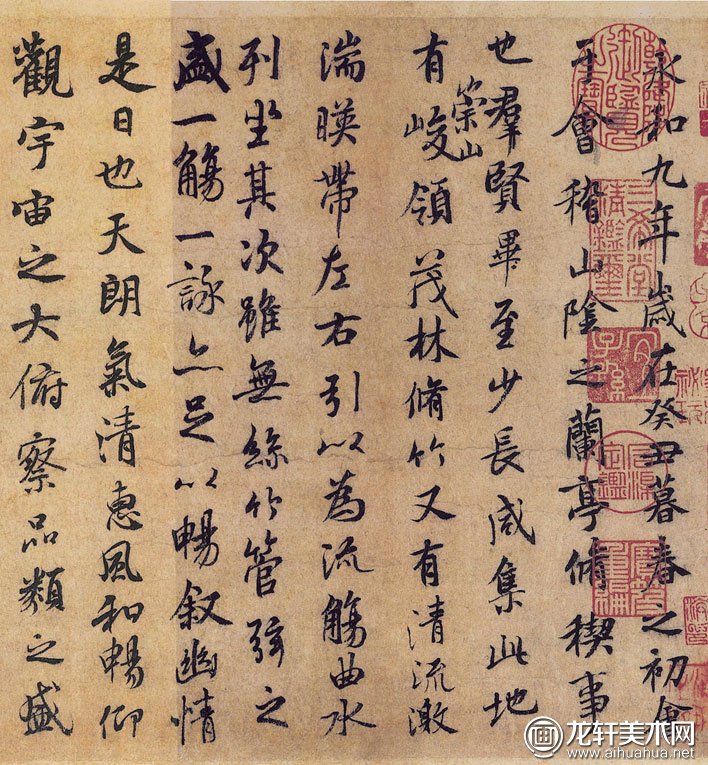 永和九年歲在癸丑暮春之初會
于會稽山陰之蘭亭脩稧事
也羣賢畢至少長咸集此地
有崇山峻領茂林脩竹又有清流激
湍暎帶左右引以為流觴曲水
列坐其次雖無絲竹管弦之
盛一觴一詠亦足以暢叙幽情
是日也天朗氣清惠風和暢仰
觀宇宙之大俯察品類之盛
三希堂精鑑璽
宜子孫
龙轩美术网
www.aihuahua.net